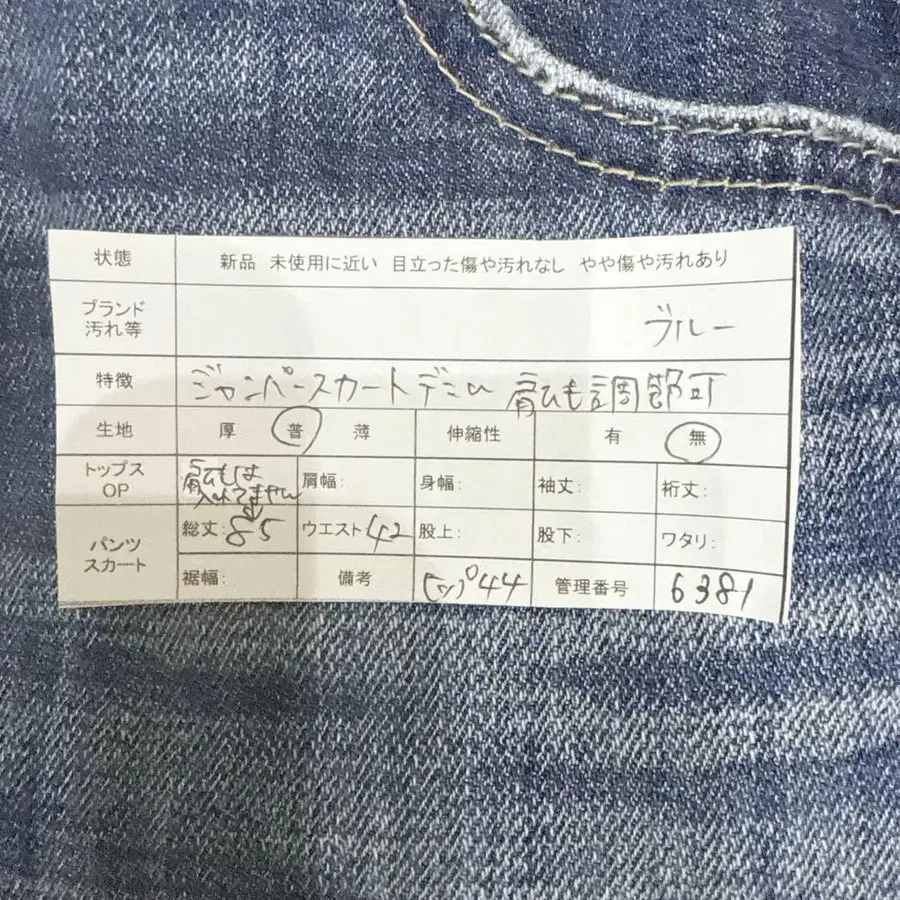 状態 新品 未使用に近い 目立った傷や汚れなし やや傷や汚れあり
ブランド
汚れ等 ブルー
特徴 ジャンパースカートデニム 肩ひも調節可
生地 厚 普 薄 伸縮性 有 無
トップス
OP 肩ひもは
入れてません 肩幅: 身幅: 袖丈: 裄丈:
パンツ
スカート 総丈: 85 ウエスト 42 股上: 股下: ワタリ:
裾幅: 備考 ヒップ44 管理番号 6381